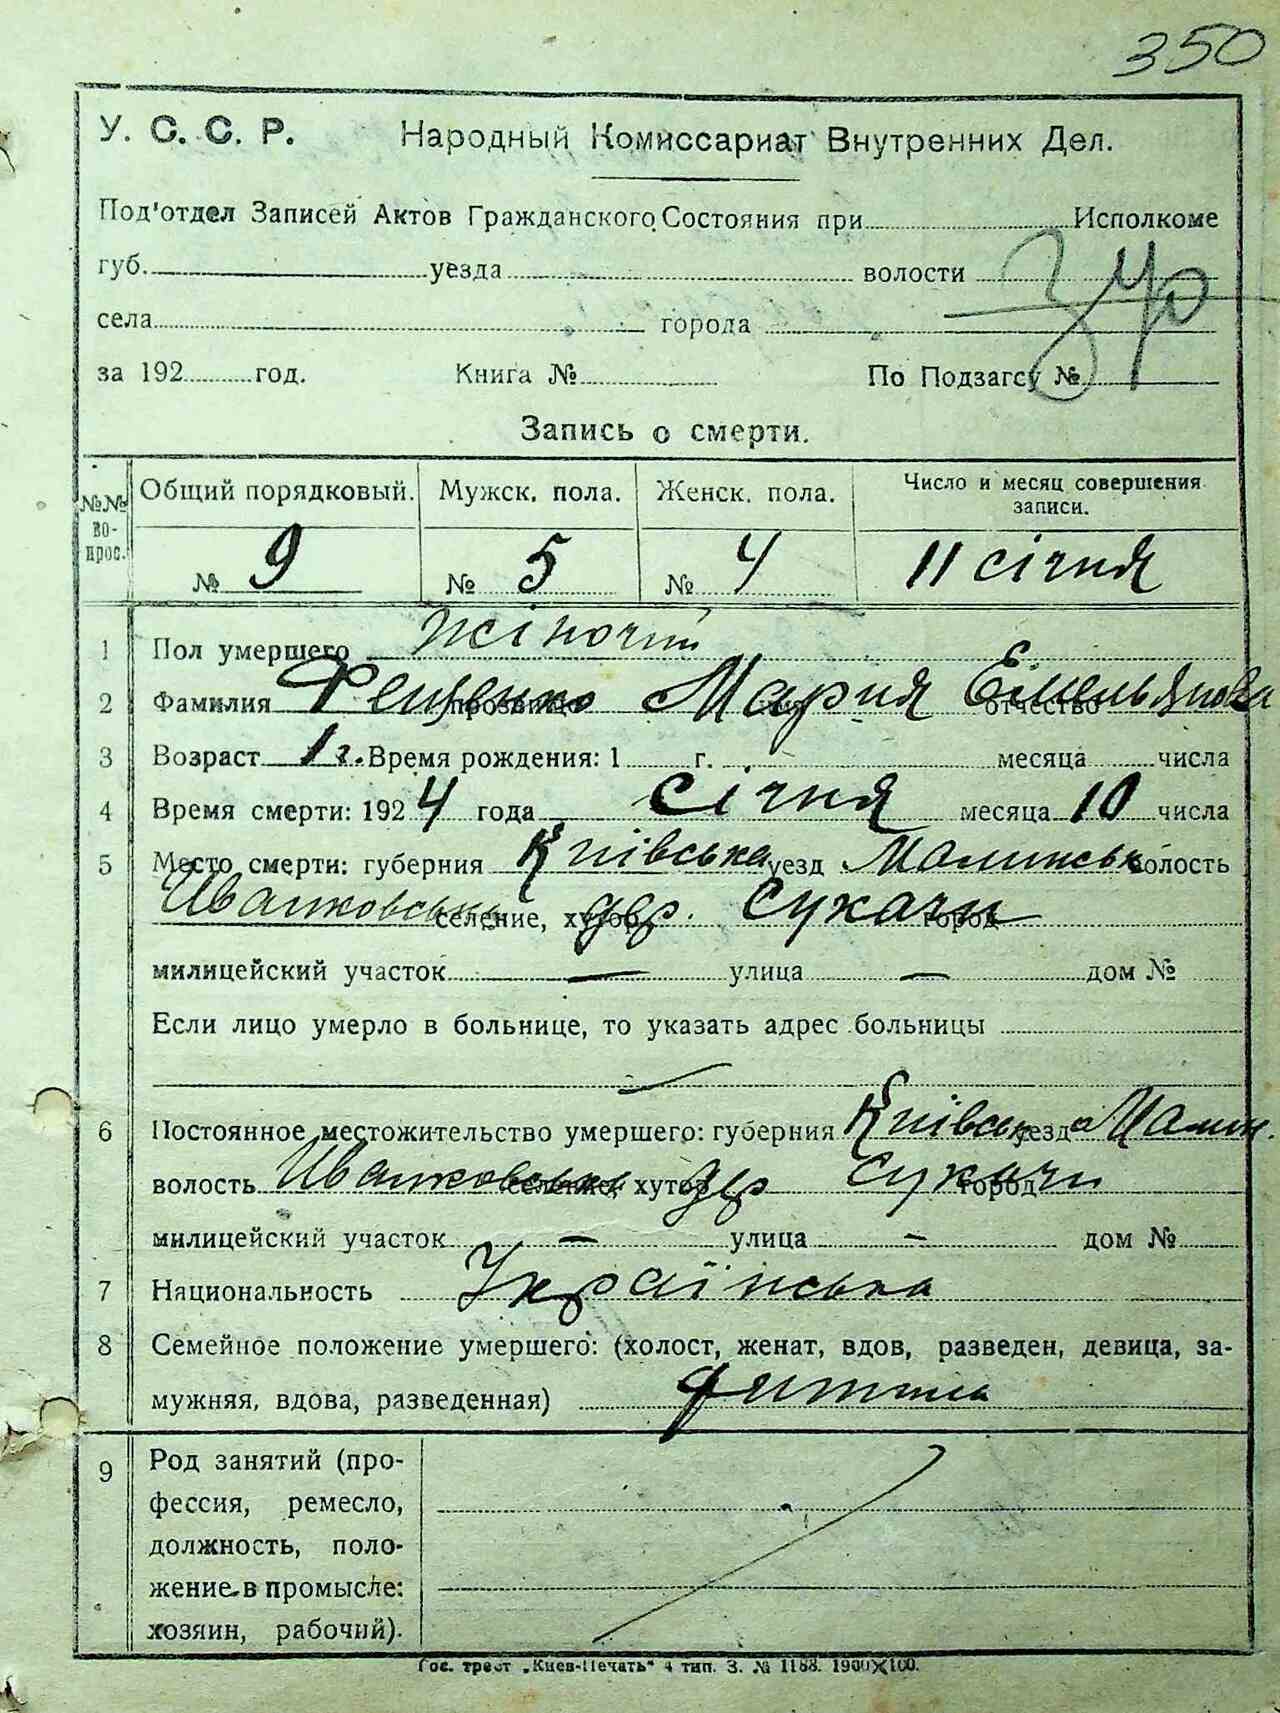 350
У. С. С. Р. Народный Комиссариат Внутренних Дел.
Под'отдел Записей Актов Гражданского Состояния при Исполкоме
губ. уезда волости
села города
за 192 год. Книга № По Подзагсу №
Запись о смерти.
№№ вопрос. Общий порядковый. Мужск. пола. Женск. пола. Число и месяц совершения записи.
№ 9 № 5 № 4 11 січня
1 Пол умершего жіночий
2 Фамилия Фещенко прозвище Мария отчество Емельянова
3 Возраст 1 г. Время рождения: 1 г. месяца числа
4 Время смерти: 1924 года січня месяца 10 числа
5 Место смерти: губерния Київська уезд Малинськ волость
Иванковська селение, хутор дер. Сухачи город
милицейский участок — улица — дом №
Если лицо умерло в больнице, то указать адрес больницы
6 Постоянное местожительство умершего: губерния Київська уезд Малин.
волость Иванковська селение, хутор дер Сухачи город
милицейский участок — улица — дом №
7 Национальность Українська
8 Семейное положение умершего: (холост, женат, вдов, разведен, девица, за-
мужняя, вдова, разведенная) дитина
9 Род занятий (про-
фессия, ремесло,
должность, поло-
жение в промысле:
хозяин, рабочий).
Гос. трест „Киев-Печать“ 4 тип. З. № 1188. 1900×100.